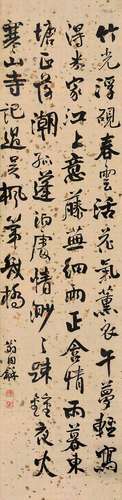 竹光浮硯春雲活花氣薰衣午夢輕寫
得米家江上意蘼蕪細雨正含情雨暮東
塘正落潮孤蓬泊處情渺〻疎鐘夜火
寒山寺記過吳楓第幾橋
翁同龢